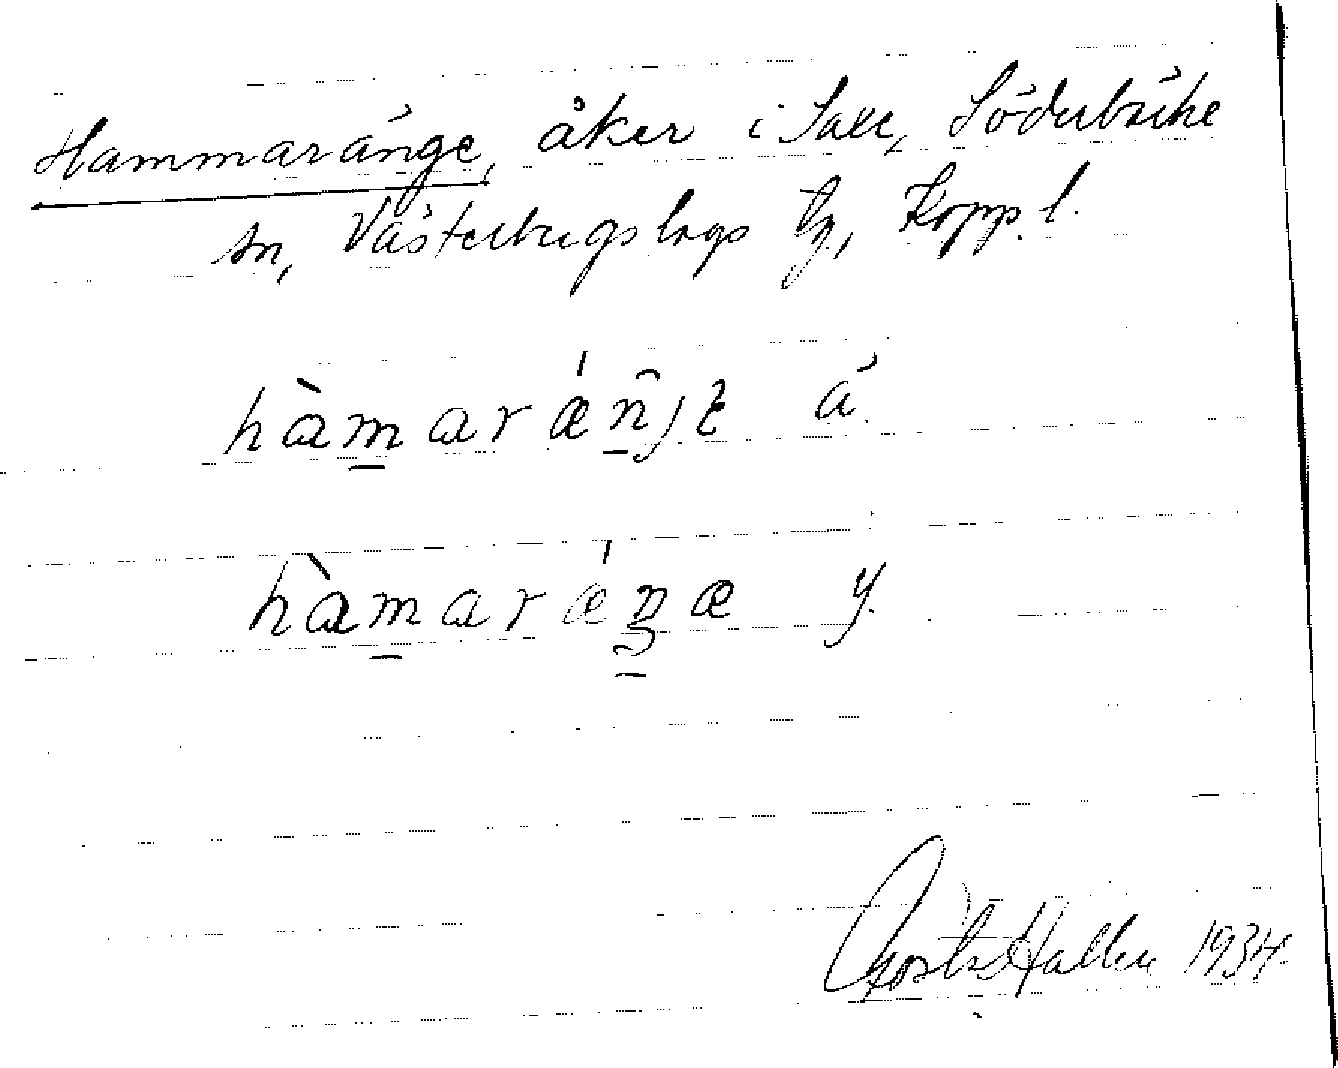 Hammaränge, åker i Saxe, Söderbärke
sn, Västerbergslags tg, Kopp. l.
hàmarǽn̂jɛ ä.
hàmarǽŋæ y.
Gösta Hallén 1934.